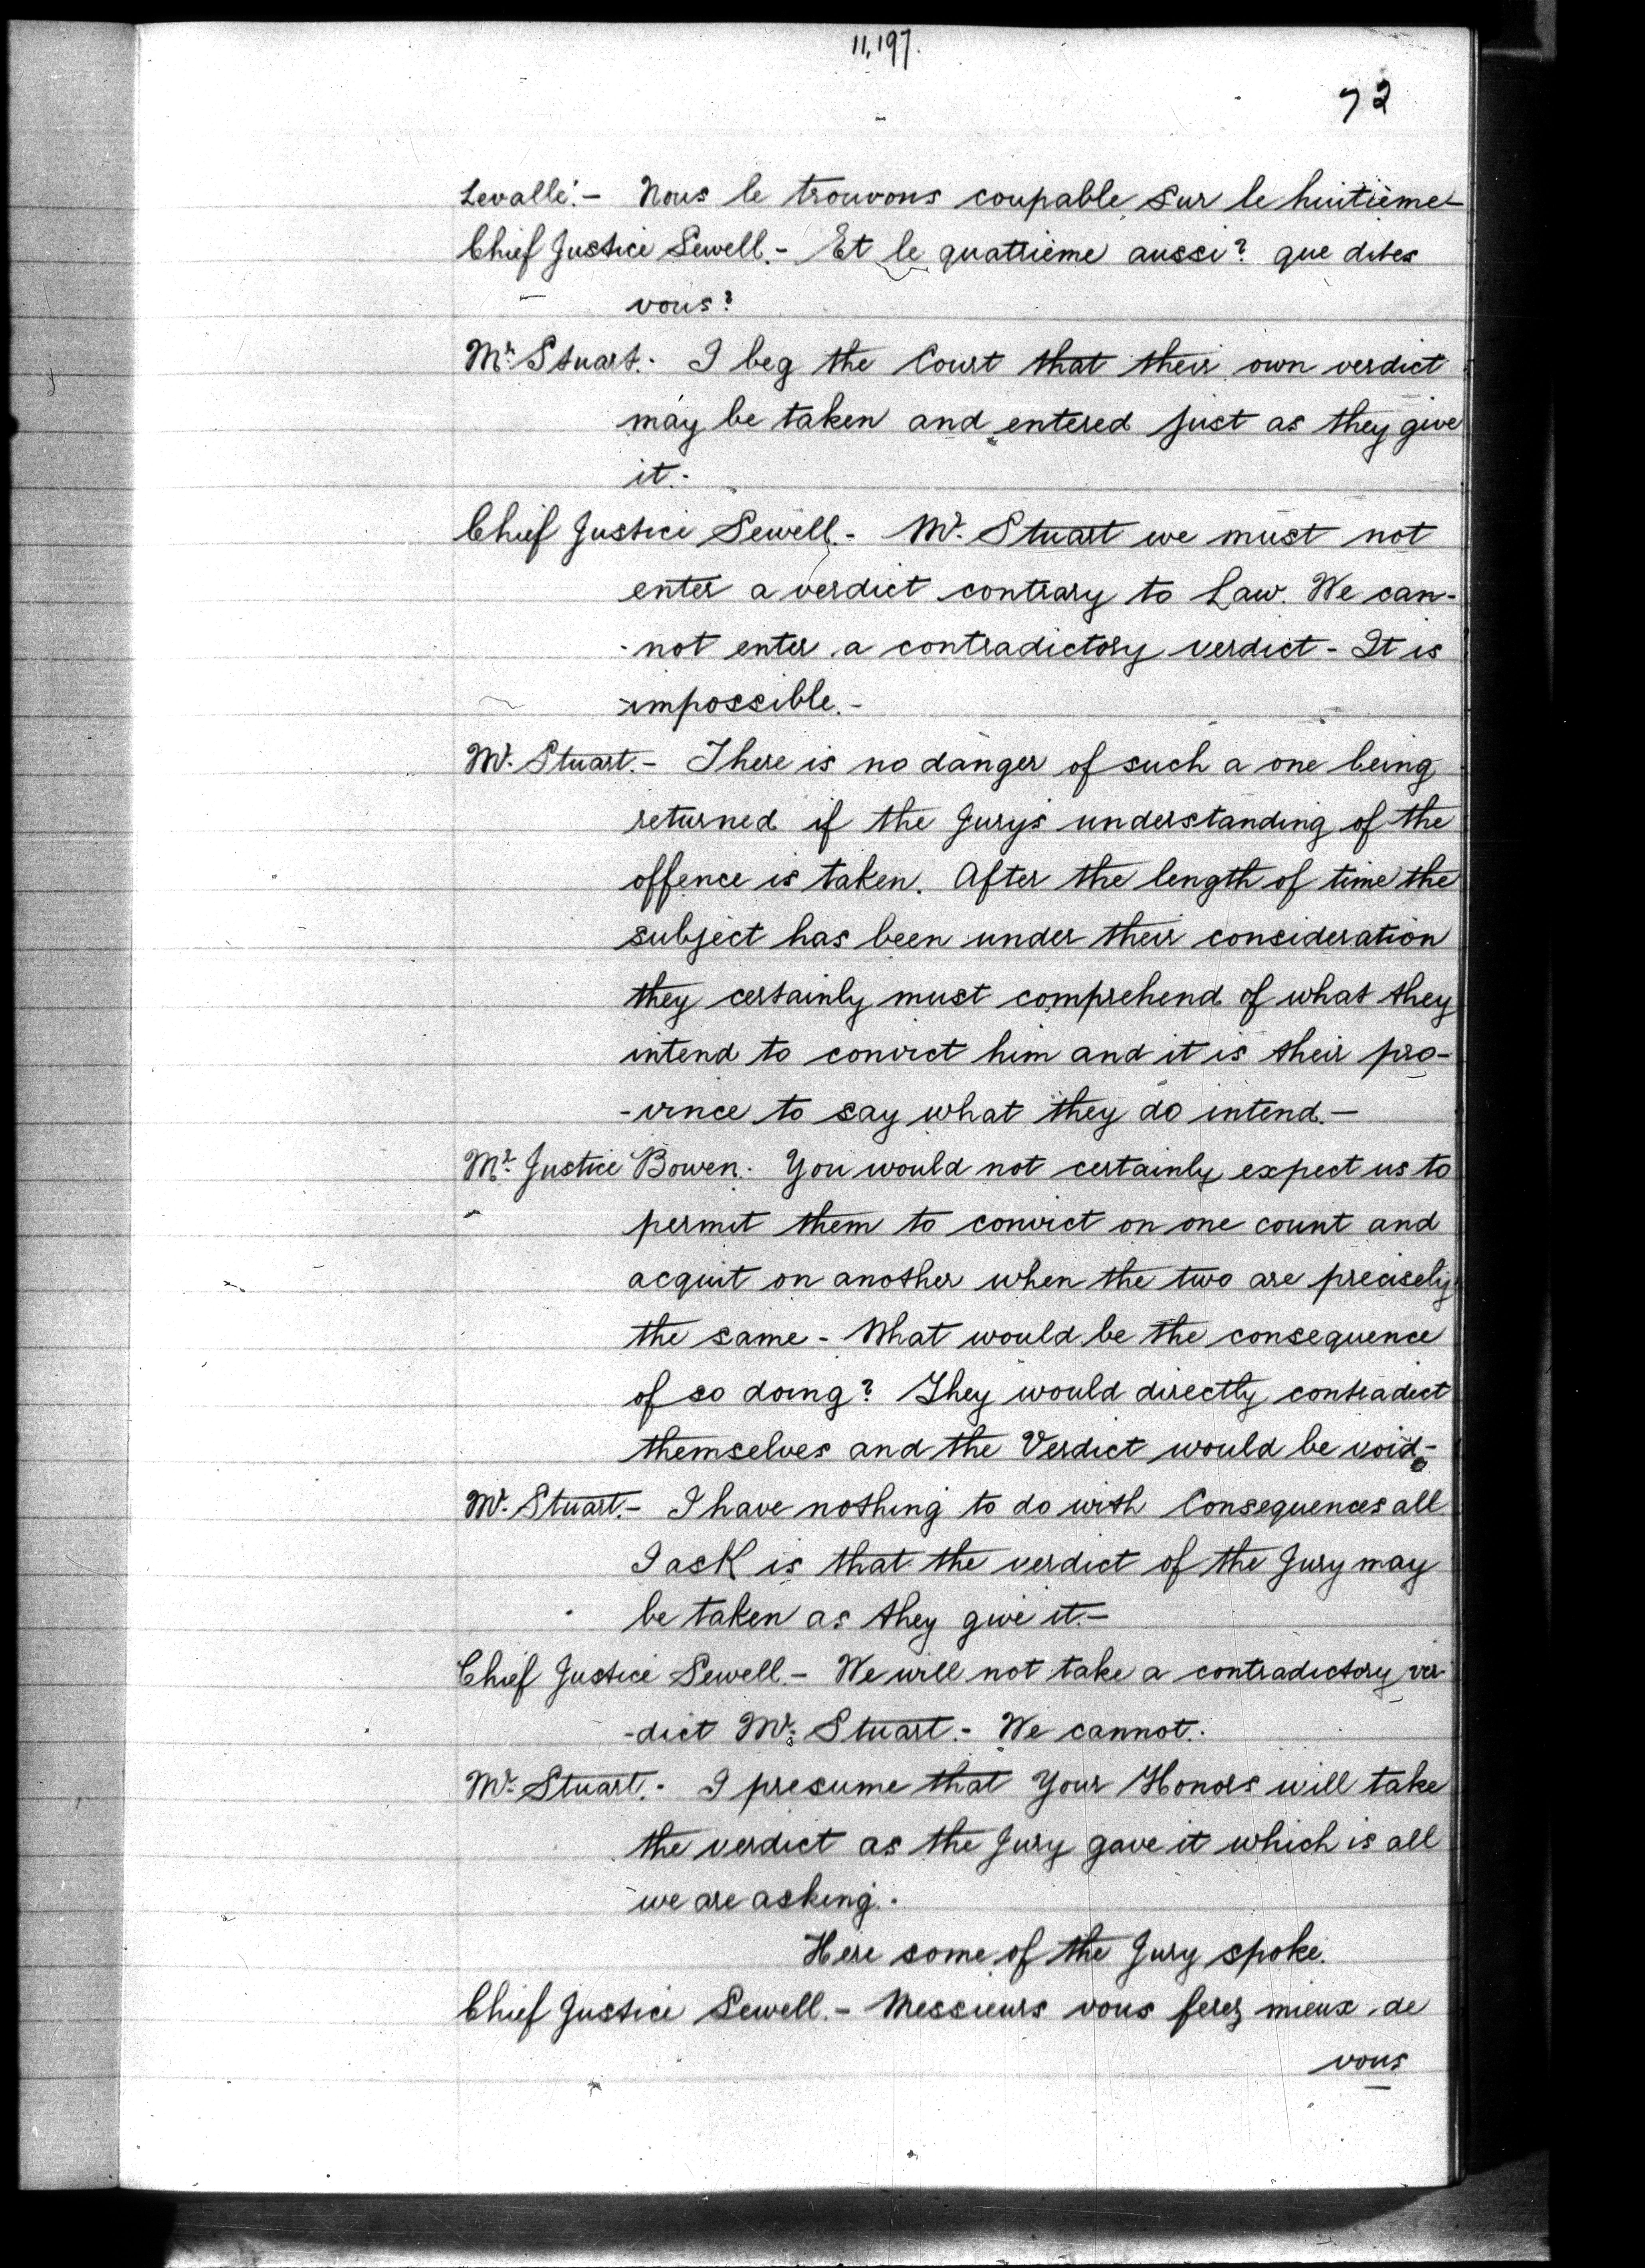 11,197.
72
Levallé.- Nous le trouvons coupable sur le huitième-
Chief Justice Sewell.- Et le quatrième aussi? que dites
vous?
Mr. Stuart.- I beg the Court that their own verdict
may be taken and entered just as they give
it.-
Chief Justice Sewell.- Mr. Stuart we must not
enter a verdict contrary to Law. We can-
-not enter a contradictory verdict - It is
impossible.-
Mr. Stuart.- There is no danger of such a one being
returned if the Jury's understanding of the
offence is taken. After the length of time the
subject has been under their consideration
they certainly must comprehend of what they
intend to convict him and it is their pro-
-vince to say what they do intend.-
Mr. Justice Bowen. You would not certainly expect us to
permit them to convict on one count and
acquit on another when the two are precisely
the same - What would be the consequence
of so doing? They would directly contradict
themselves and the Verdict would be void-
Mr. Stuart.- I have nothing to do with Consequences all
I ask is that the verdict of the Jury may
be taken as they give it.-
Chief Justice Sewell.- We will not take a contradictory ver-
-dict Mr. Stuart.- We cannot.
Mr. Stuart.- I presume that Your Honors will take
the verdict as the Jury gave it which is all
we are asking.-
Here some of the Jury spoke.
Chief Justice Sewell.- Messieurs vous ferez mieux de
vous